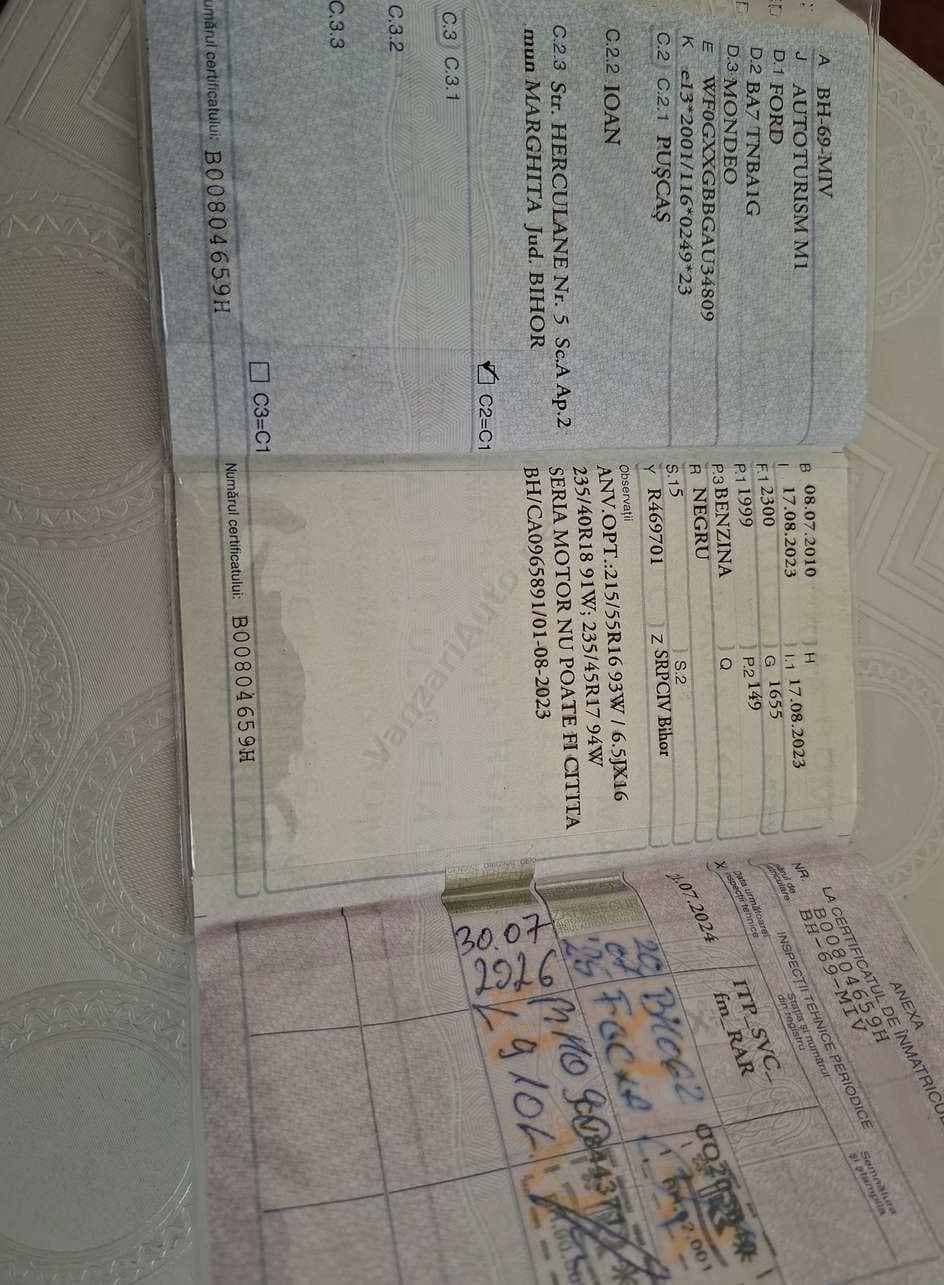 A BH-69-MIV
J AUTOTURISM M1
D.1 FORD
D.2 BA7 TNBA1G
D.3 MONDEO
E WF0GXXGBBGAU34809
K e13*2001/116*0249*23
C.2 C.2.1 PUȘCAȘ
C.2.2 IOAN
C.2.3 Str. HERCULANE Nr. 5 Sc.A Ap.2
mun MARGHITA Jud. BIHOR
C2=C1
C.3 C.3.1
C.3.2
C.3.3
C3=C1
umărul certificatului: B00804659H
B 08.07.2010 H
I 17.08.2023 I.1 17.08.2023
F.1 2300 G 1655
P.1 1999 P.2 149
P.3 BENZINA Q
R NEGRU
S.1 5 S.2
Y R469701 Z SRPCIV Bihor
Observații
ANV.OPT.:215/55R16 93W / 6.5JX16
235/40R18 91W; 235/45R17 94W
SERIA MOTOR NU POATE FI CITITA
BH/CA0965891/01-08-2023
Numărul certificatului: B00804659H
VanzariAuto
ANEXA
LA CERTIFICATUL DE ÎNMATRICUL
NR. B00804659H
BH-69-MIV
INSPECȚII TEHNICE PERIODICE
Data următoarei
inspecții tehnice
Stația și numărul
din registru
Semnătura
și ștampila
X
.07.2024 ITP_SVC-
fm_RAR
30.07
2026